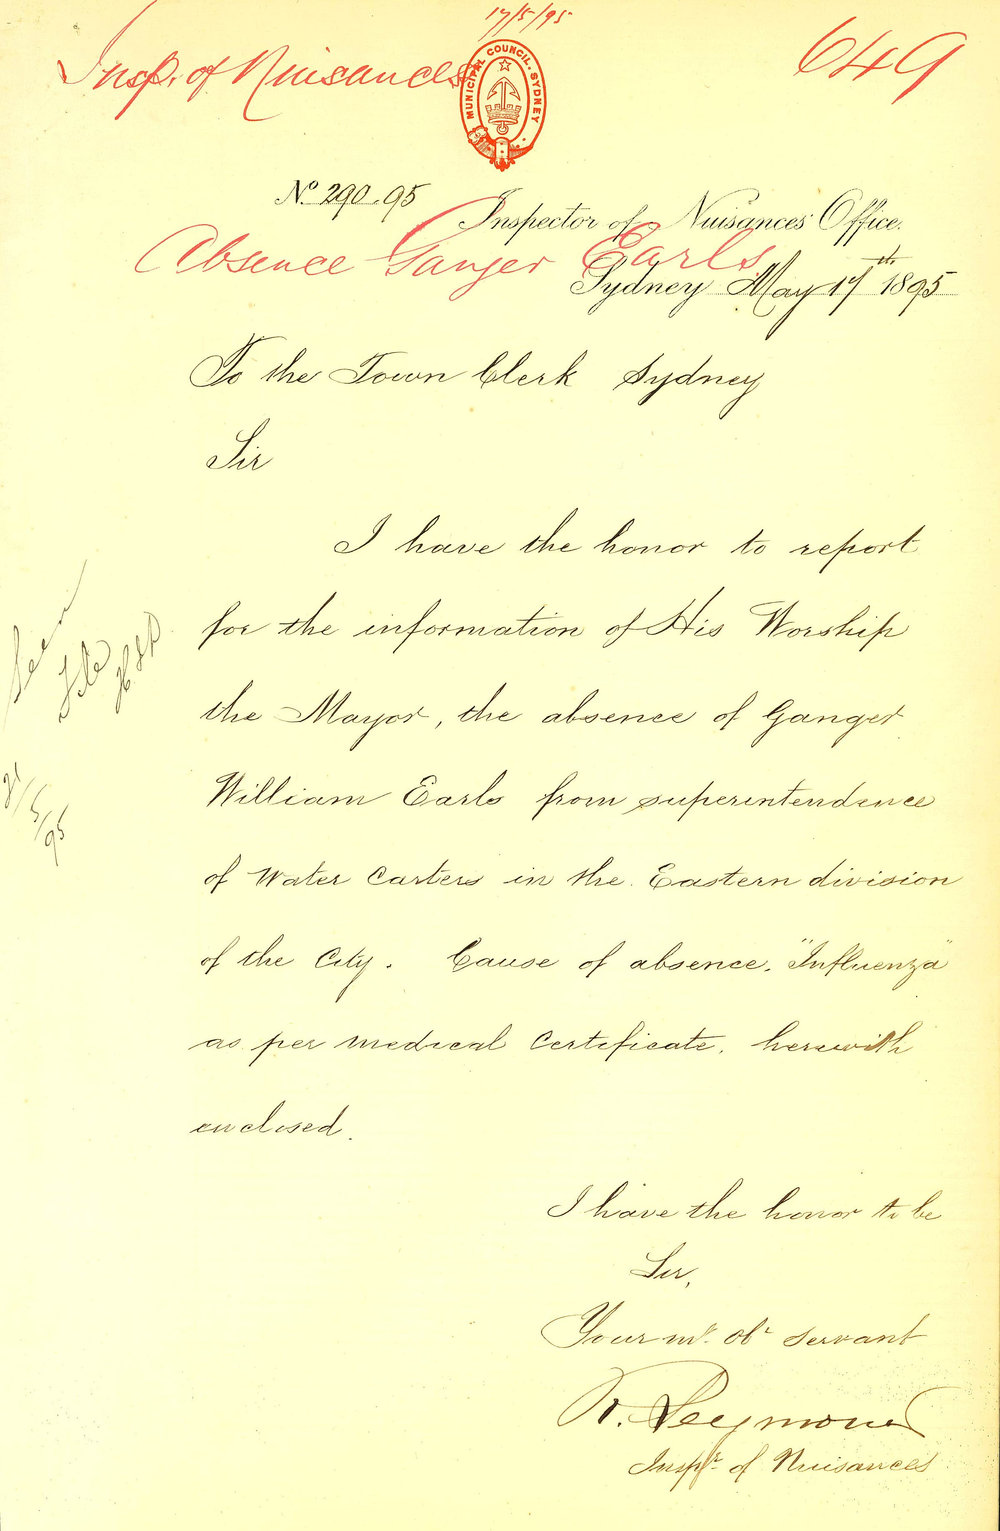 17/5/95
Insp. of Nuisances
649
MUNICIPAL COUNCIL. SYDNEY
No. 290.95
Inspector of Nuisances Office.
Absence Ganger Earls
Sydney May 17th 1895
To the Town Clerk Sydney
Sir
I have the honor to report
for the information of His Worship
the Mayor, the absence of Ganger
William Earls from superintendence
of Water Carters in the Eastern division
of the City. Cause of absence. "Influenza"
as per medical Certificate. herewith
enclosed.
Seen
File
21/5/95
I have the honor to be
Sir,
Your mt. obt servant
R. Seymour
Inspr. of Nuisances